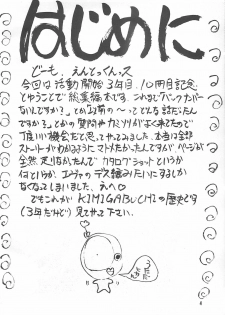 はじめに
どーも、えんどっくんっス
今回は活動開始3年目、10冊目記念
とゆうことで総集編本です。これまで「バックナンバー
ないんですか?」とか「以前の〜ってどんな話だったん
ですか?」とかの質問やカミソリがよく来てたので
丁度いい機会だと思ってやってみました。本当は全部
ストーリーがわかるようにマトメたかったんですが、ページが
全然足りなかったんでカタログショットというか
何というか、エヴァのデス編みたいにするしか
なくなってしまいました。えへ
でもこれがKIMIGABUCHIの歴史です
(3年だけど)見てやって下さい。